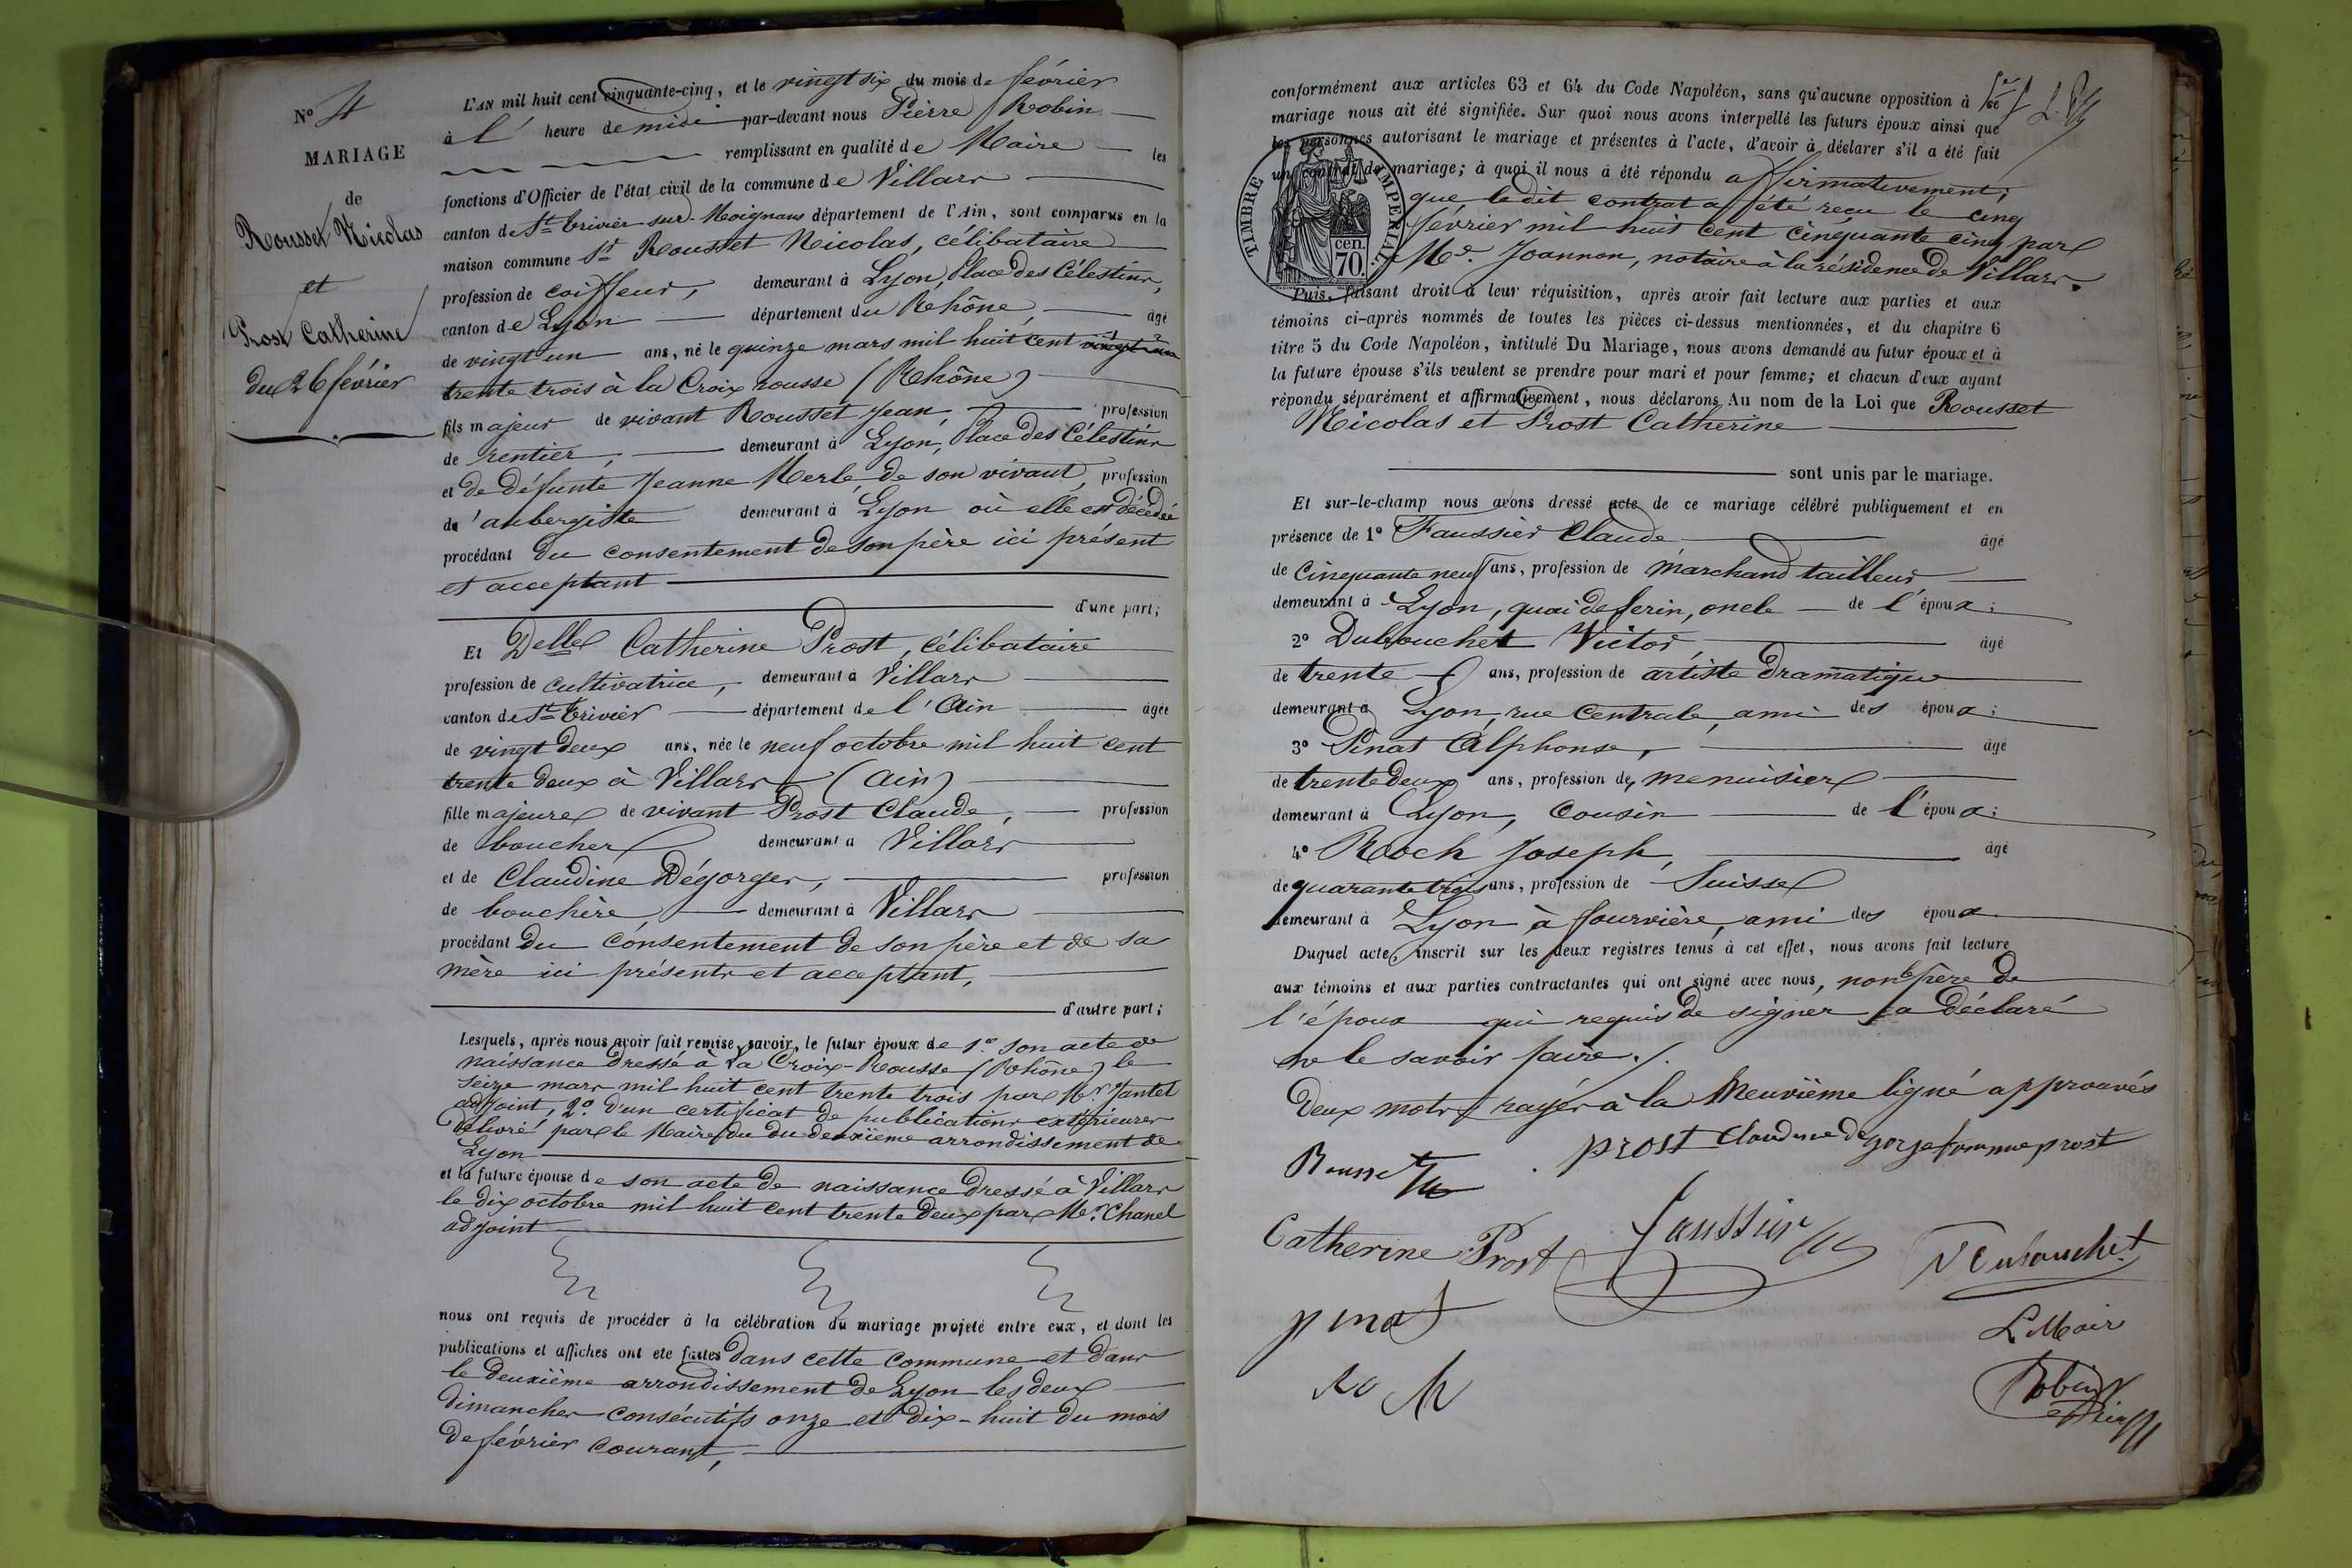 N° 4
MARIAGE
de
Rousset Nicolas
et
Prost Catherine
du 26 février
L'AN mil huit cent cinquante-cinq, et le vingt six du mois de février
à l' heure de midi par-devant nous Pierre Robin
remplissant en qualité de Maire les
fonctions d'Officier de l'état civil de la commune de Villars
canton de St Trivier sur Moignans département de l'Ain, sont comparus en la
maison commune Sr Rousset Nicolas, célibataire
profession de coiffeur, demeurant à Lyon, Place des Célestins,
canton de Lyon département du Rhône, âgé
de vingt un ans, né le quinze mars mil huit cent vingt un
trente trois à la Croix rousse (Rhône)
fils majeur de vivant Rousset Jean, profession
de rentier, demeurant à Lyon, Place des Célestins
et de défunte Jeanne Merle, de son vivant, profession
de 'aubergiste demeurant à Lyon où elle est décédée
procédant du consentement de son père ici présent
et acceptant
d'une part;
Et Delle Catherine Prost, célibataire
profession de cultivatrice, demeurant à Villars
canton de St Trivier département de l'Ain âgée
de vingt deux ans, née le neuf octobre mil huit cent
trente deux à Villars (Ain)
fille majeure de vivant Prost Claude, profession
de boucher demeurant à Villars
et de Claudine Dégorger, profession
de bouchère demeurant à Villars
procédant du consentement de son père et de sa
mère ici présents et acceptant,
d'autre part;
Lesquels, après nous avoir fait remise, savoir, le futur époux de 1° son acte de
naissance dressé à la Croix-Rousse (Rhône) le
seize mars mil huit cent trente trois par Mr Jantet
adjoint, 2° d'un certificat de publications extérieures
délivré par le Maire du du deuxième arrondissement de
Lyon
et la future épouse de son acte de naissance dressé à Villars
le dix octobre mil huit cent trente deux par Mr Chanel
adjoint
nous ont requis de procéder à la célébration du mariage projeté entre eux, et dont les
publications et affiches ont été faites dans cette commune et dans
le deuxième arrondissement de Lyon les deux
dimanches consécutifs onze et dix-huit du mois
de février courant,
conformément aux articles 63 et 64 du Code Napoléon, sans qu'aucune opposition à ce
mariage nous ait été signifiée. Sur quoi nous avons interpellé les futurs époux ainsi que
les personnes autorisant le mariage et présentes à l'acte, d'avoir à déclarer s'il a été fait
un contrat de mariage; à quoi il nous a été répondu affirmativement;
que le dit contrat a été reçu le cinq
février mil huit cent cinquante cinq par
Me Joannon, notaire à la résidence de Villars.
TIMBRE IMPERIAL
cen. 70.
Puis, faisant droit à leur réquisition, après avoir fait lecture aux parties et aux
témoins ci-après nommés de toutes les pièces ci-dessus mentionnées, et du chapitre 6
titre 5 du Code Napoléon, intitulé Du Mariage, nous avons demandé au futur époux et à
la future épouse s'ils veulent se prendre pour mari et pour femme; et chacun d'eux ayant
répondu séparément et affirmativement, nous déclarons Au nom de la Loi que Rousset
Nicolas et Prost Catherine
sont unis par le mariage.
Et sur-le-champ nous avons dressé acte de ce mariage célébré publiquement et en
présence de 1° Faussier Claude, âgé
de Cinquante neuf ans, profession de marchand tailleur
demeurant à Lyon, quai de serin, oncle de l'époux;
2° Dubouchet Victor, âgé
de trente ans, profession de artiste dramatique
demeurant à Lyon, rue Centrale, ami des époux;
3° Pinat Alphonse, âgé
de trente deux ans, profession de menuisier
demeurant à Lyon, Cousin de l'époux;
4° Roch Joseph, âgé
de quarante trois ans, profession de Suisse
demeurant à Lyon à fourvière, ami des époux
Duquel acte, inscrit sur les deux registres tenus à cet effet, nous avons fait lecture
aux témoins et aux parties contractantes qui ont signé avec nous, non le père de
l'époux qui requis de signer a déclaré
ne le savoir faire ./.
Deux mots rayés à la Neuvième ligne approuvés
Rousset
prost Claudine degorge famme prost
Catherine Prost
faussier
V Dubouchet
pinat
L Maire
Roch
Robin
Pierre